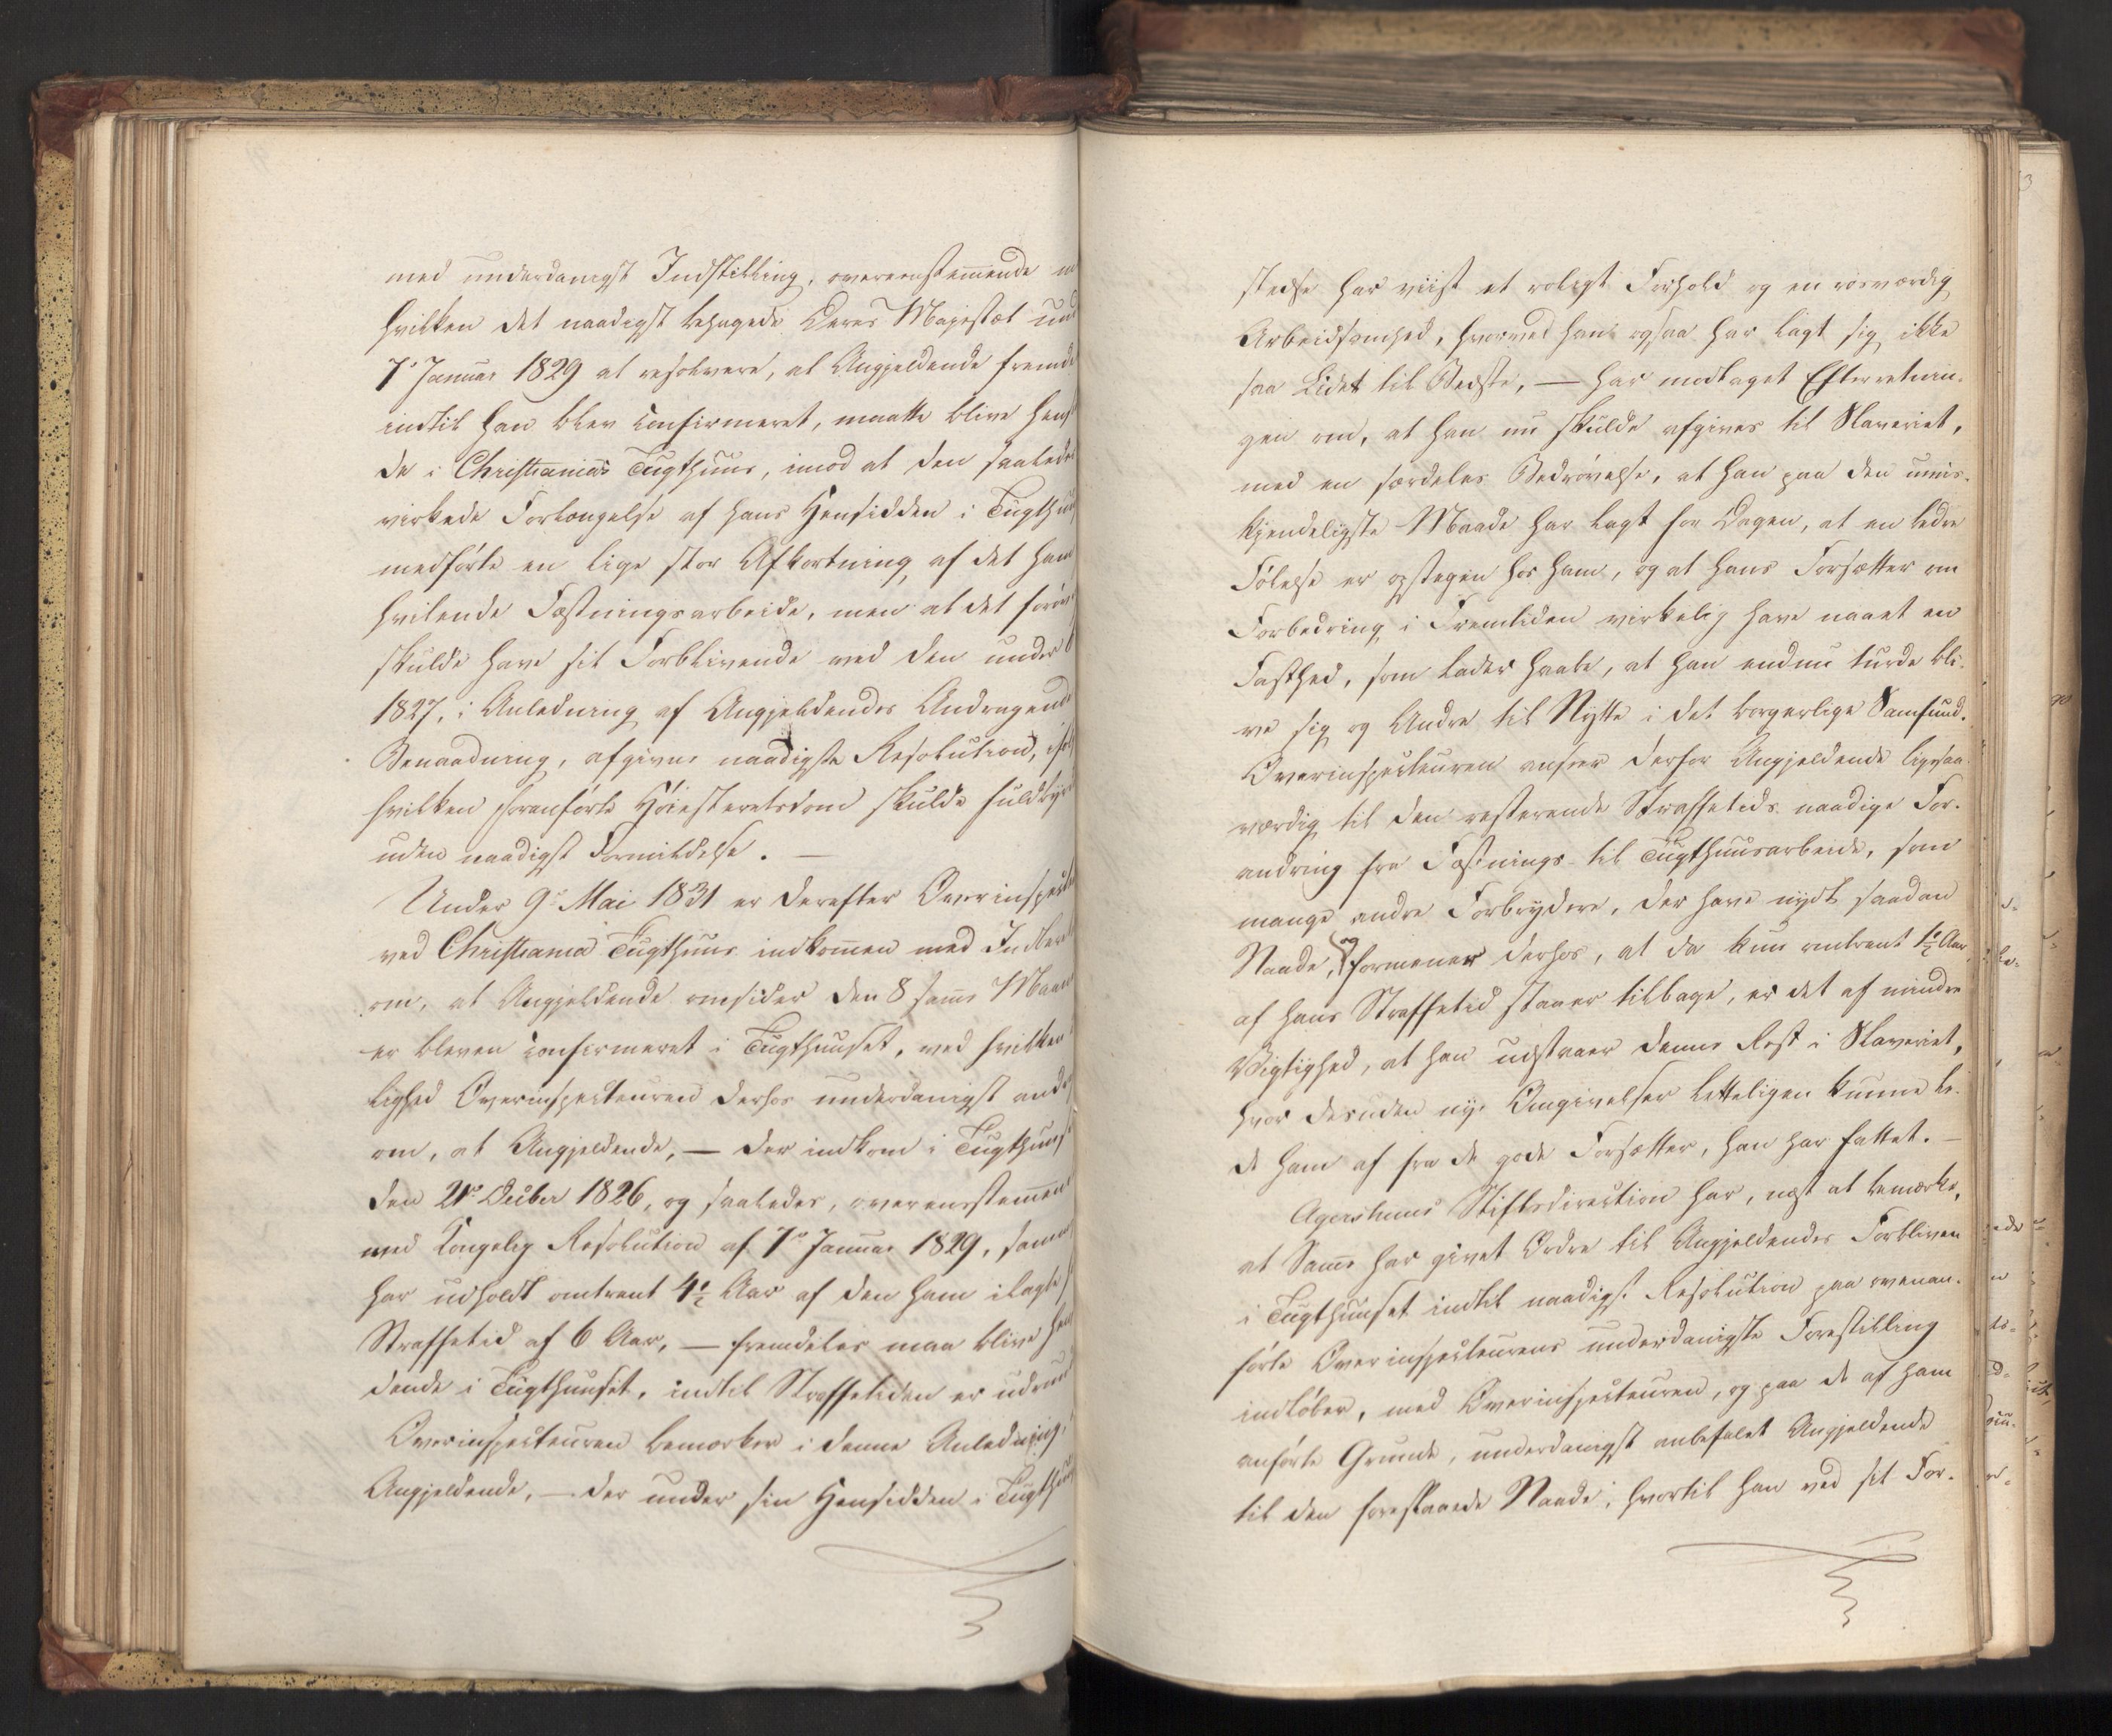 med underdanigst Indstilling, overeensstemmende m
hvilken det naadigst behagede Deres Majestæt und
7de Januar 1829 at resolvere, at Angjeldende fremde
indtil han blev confirmeret, maatte blive hens
de i Christianias Tugthuus, imod at den saaledes
virkede Forlængelse af hans Hensidden i Tugthus
medførte en lige stor Afkortning af det ham
hvilende Fæstningsarbeide, men at det forøv
skulde have sit Forblivende med den under 6
1827, i Anledning af Angjeldendes Andragende
Benaadning, afgivne naadigste Resolution, iføl
hvilken foranførte Høiesteretsdom skulde fuldbyr
uden naadigst Formildelse. —
Under 9de Mai 1831 er derefter Overinspecte
ved Christiania Tugthuus indkommen med Indberet
om, at Angjeldende omsider den 8 samme Maane
er bleven confirmeret i Tugthuuset, ved hvilken
lighed Overinspecteuren derhos underdanigst andra
om, at Angjeldende, — der indkom i Tugthuus
den 21de Decber 1826, og saaledes, overeensstemmen
med Kongelig Resolution af 7de Januar 1829, sammes
har udholdt omtrent 4½ Aar af den ham ilagte
Straffetid af 6 Aar, — fremdeles maa blive hen
dende i Tugthuuset, indtil Straffetiden er udrund
Overinspecteuren bemærker i denne Anledning,
Angjeldende, — der under sin Hensidden i Tugthuus
stedse har viist et roligt Forhold og en rosværdig
Arbeidsomhed, hvorved han ogsaa har lagt sig ikke
saa Lidet til Bedste, — har modtaget Efterretnin-
gen om, at han nu skulde afgives til Slaveriet,
med en særdeles Bedrøvelse, at han paa den umis-
kjendeligste Maade har lagt for Dagen, at en bedre
Følelse er opstegen hos ham, og at hans Forsætter om
Forbedring i Fremtiden virkelig have naaet en
Fasthed, som lader haabe, at han endnu turde bli-
ve sig og Andre til Nytte i det borgerlige Samfund.
Overinspecteuren anseer derfor Angjeldende ligesaa
værdig til den resterende Straffetids naadige For-
andring fra Fæstnings- til Tugthuusarbeide, som
mange andre Forbrydere, der have nydt saadan
Naade, og formener derhos, at da kun omtrent 1½ Aar
af hans Straffetid staaer tilbage, er det af mindre
Vigtighed, at han udstaaer denne Rest i Slaveriet,
hvor desuden nye Omgivelser letteligen kunne le-
de ham af fra de gode Forsætter, han har fattet. —
Agershuus Stiftsdirection har, næst at bemærke,
at Samme har givet Ordre til Angjeldendes Forbliven
i Tugthuuset indtil naadigst Resolution paa ovenan-
førte Overinspecteurens underdanigste Forestilling
indløber, med Overinspecteuren, og paa de af ham
anførte Grunde, underdanigst anbefalet Angjeldende
til den forespaaede Naade, hvortil han ved sit For-